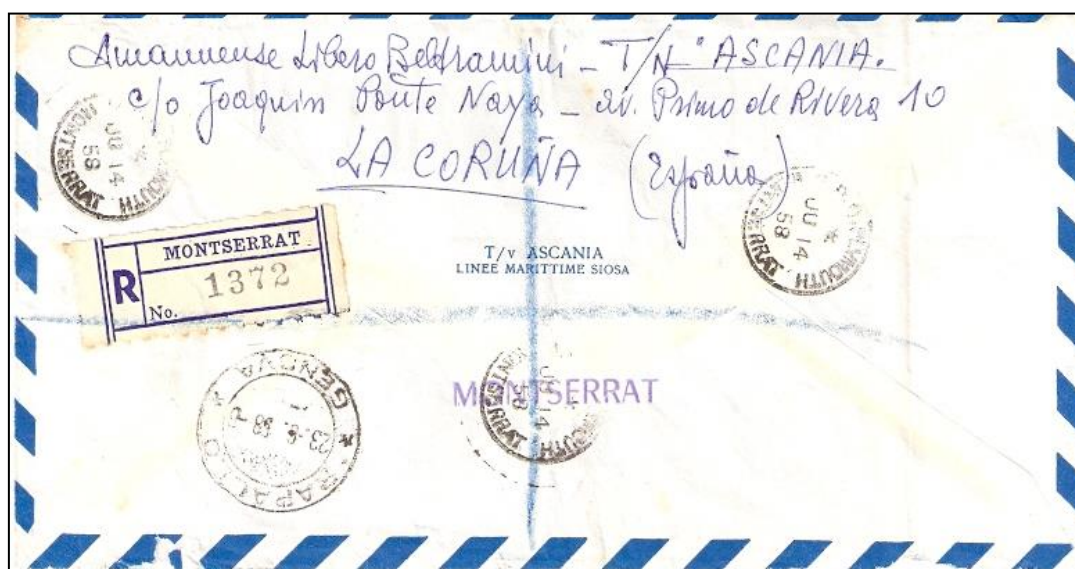 Amannuense Libero Beltramini - T/N "ASCANIA.
c/o Joaquin Ponte Naya - av. Primo de Rivera 10
LA CORUÑA (España)
PLYMOUTH
JU 14
58
MONTSERRAT
PLYMOUTH
JU 14
58
MONTSERRAT
MONTSERRAT
R
No. 1372
T/v ASCANIA
LINEE MARITTIME SIOSA
MONTSERRAT
PLYMOUTH
JU 14
58
MONTSERRAT
RAPALLO
GENOVA